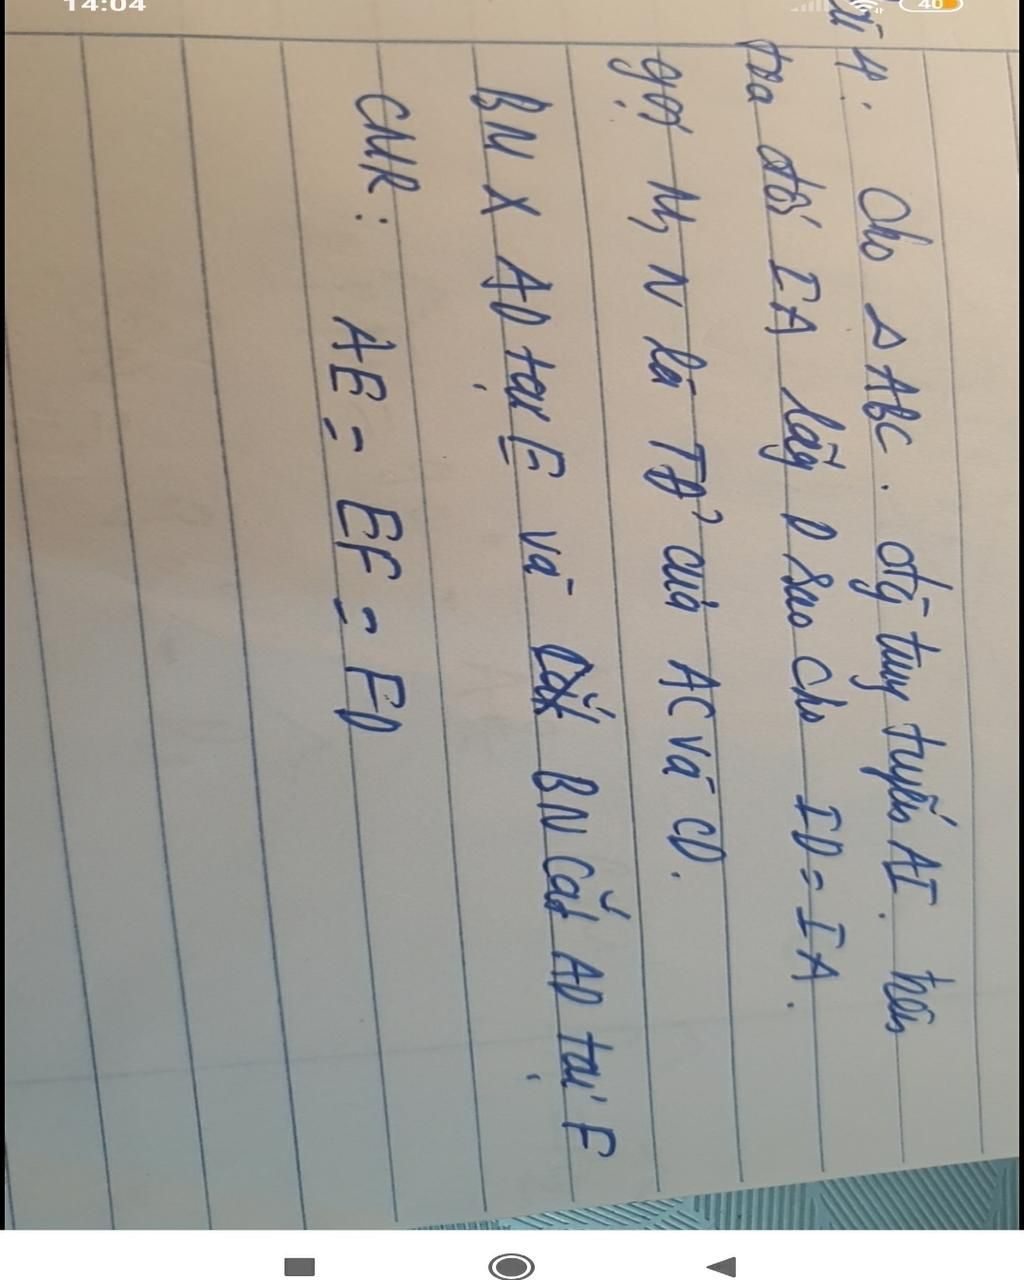 14:04
40
ài 4: Cho △ABC. đg tuyg tuyến AI. trên
tra đối IA lấy D sao cho ID = IA.
gọi M, N là TĐ² của AC và CD.
BM X AD tại E và BN cắt AD tại F
CMR: AE = EF = FD